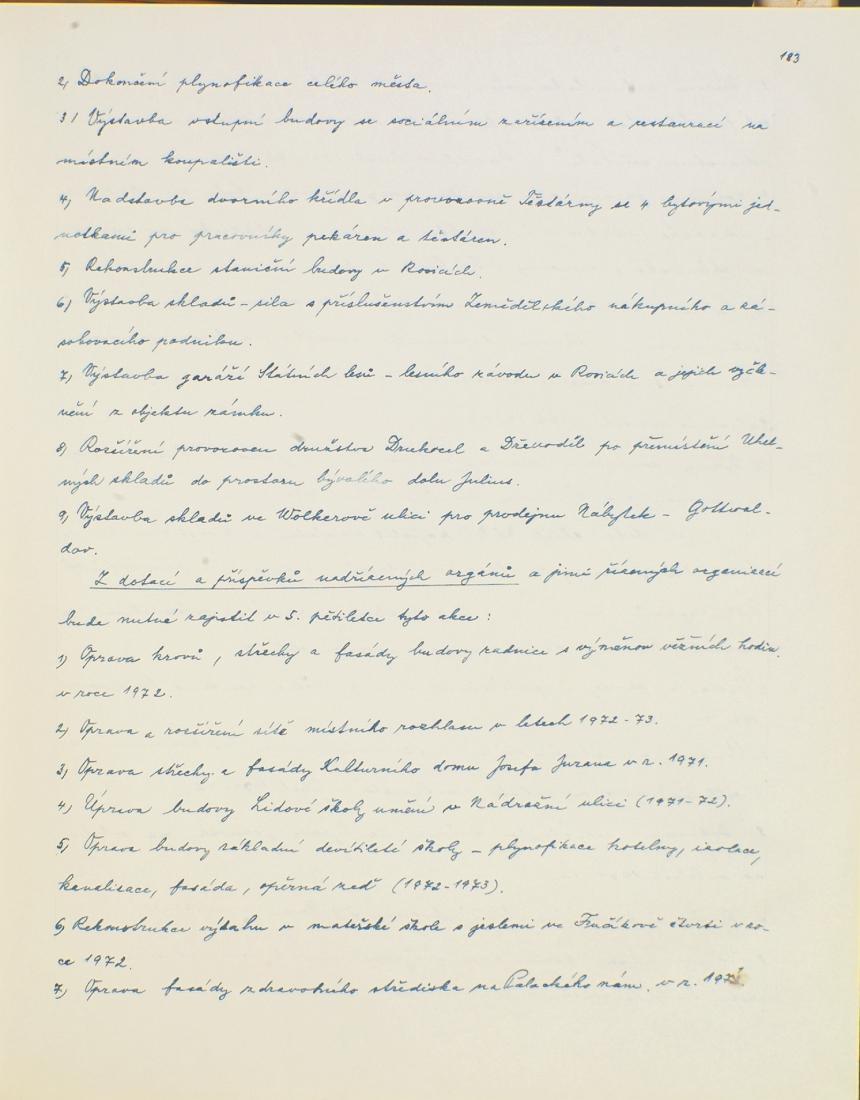 183
2, Dokončení plynofikace celého města.
3/ Výstavba vstupní budovy se sociálním zařízením a restaurací na
místním koupališti.
4, Nadstavba dvorního křídla v provozovně Těstárny se 4 bytovými jed-
notkami pro pracovníky pekáren a těstáren.
5, Rekonstrukce staniční budovy v Rosicích.
6, Výstavba skladů - sila s příslušenstvím Zemědělského nákupního a zá-
sobovacího podniku.
7, Výstavba garáží Státních lesů - lesního závodu v Rosicích a jejich vyčle-
nění z objektu zámku.
8, Rozšíření provozoven družstva Drukocel a Dřevodíl po přemístění Uhel-
ných skladů do prostoru bývalého dolu Julius.
9, Výstavba skladů ve Wolkerově ulici pro prodejnu Nábytek - Gottwal-
dov.
Z dotací a příspěvků nadřízených orgánů a jimi řízených organizací
bude nutné zajistit v 5. pětiletce tyto akce:
1, Oprava krovů, střechy a fasády budovy radnice s výměnou věžních hodin
v roce 1972.
2, Oprava a rozšíření sítě místního rozhlasu v letech 1972-73.
3, Oprava střechy a fasády Kulturního domu Josefa Jurana v r. 1971.
4, Úprava budovy Lidové školy umění v Nádražní ulici (1971-72).
5, Oprava budovy základní devítileté školy - plynofikace kotelny, izolace,
kanalisace, fasáda, opěrná zeď (1972-1973).
6, Rekonstrukce výtahu v mateřské škole s jeslemi ve Fučíkově čtvrti v ro-
ce 1972.
7, Oprava fasády zdravotního střediska na Palackého nám. v r.